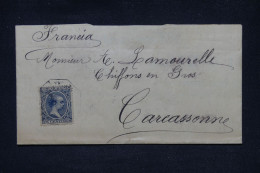 Francia
Monsieur A. Lamourelle
Chiffons en Gros
Carcassonne